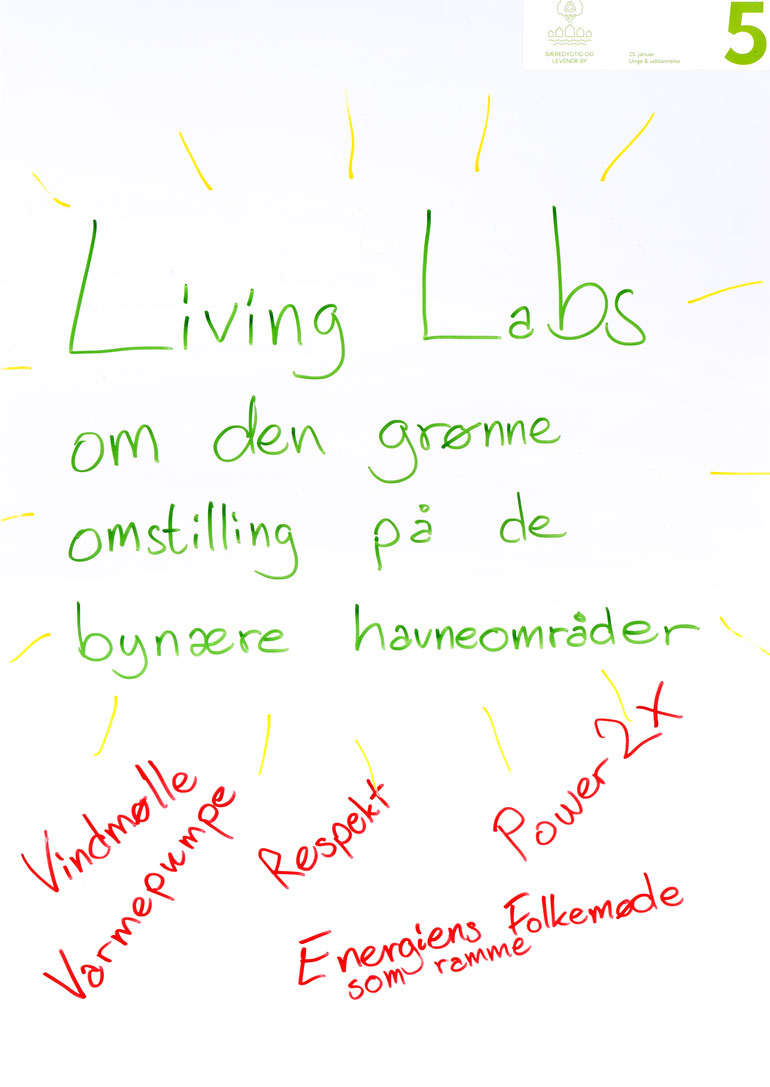 BÆREDYGTIG OG
LEVENDE BY
25. januar
Unge & uddannelse
5
Living Labs
om den grønne
omstilling på de
bynære havneområder
Vindmølle
Varmepumpe
Respekt
Power 2X
Energiens Folkemøde
som ramme